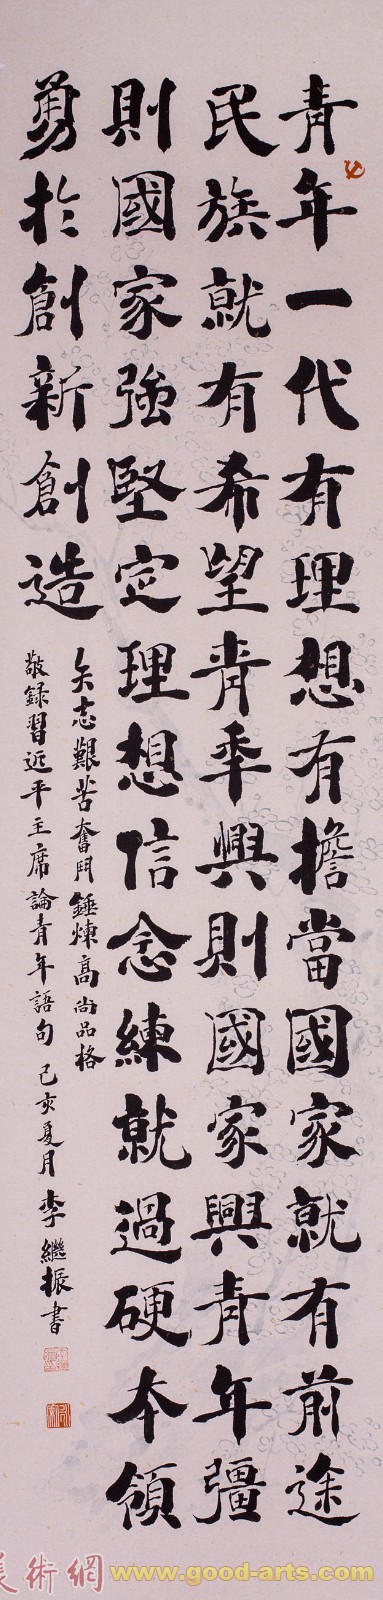 青年一代有理想有擔當國家就有前途
民族就有希望青秊興則國家興青年彊
則國家強堅定理想信念練就過硬本領
勇於創新創造
矢志艱苦奮鬥錘煉高尚品格
敬録習近平主席論青年語句 己亥夏月 李繼振書
美術網 www.good-arts.com